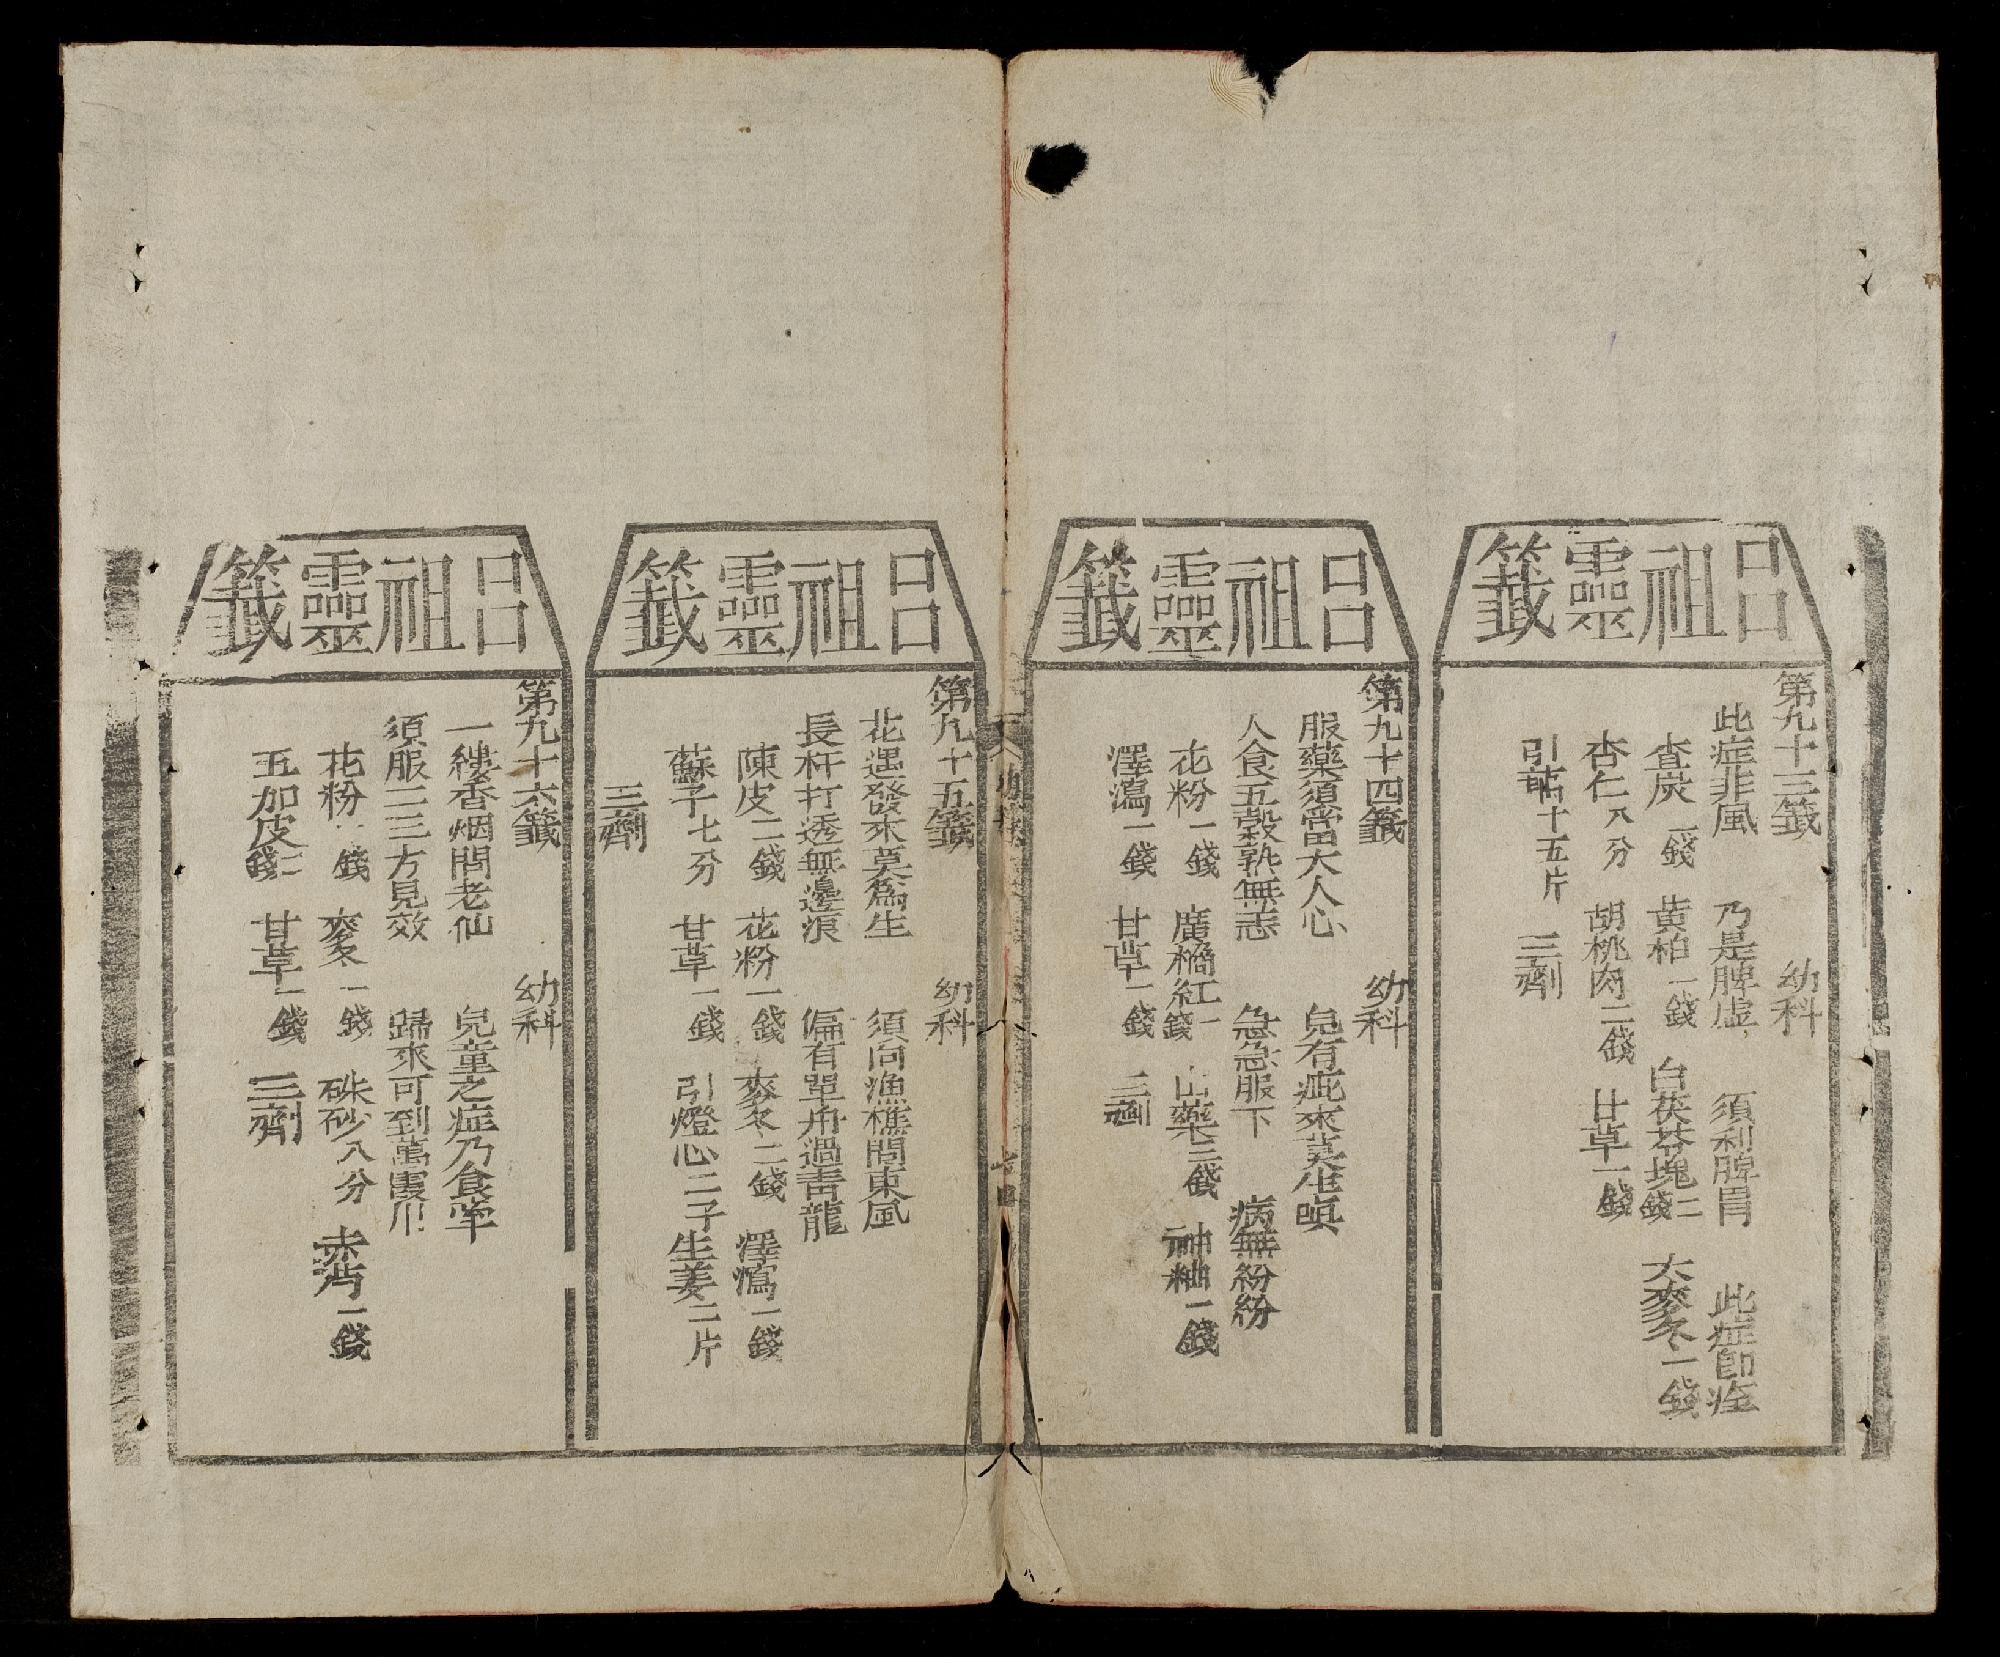 呂祖靈籤
第九十三籤 幼科
此症非風 乃是脾虛 須利脾胃 此症即痊
查炭一錢 黃柏一錢 白茯苓塊二錢 大麥冬一錢
杏仁八分 胡桃肉二錢 甘草一錢
引 十五片 三劑
呂祖靈籤
第九十四籤 幼科
服藥須當大人心 兒有疵來莫生嗔
人食五穀熟無恙 急急服下 病無紛紛
花粉一錢 廣橘紅一錢 山藥三錢 神粬一錢
澤瀉一錢 甘草一錢 三劑
呂祖靈籤
第九十五籤 幼科
花遇發來莫為生 須向漁樵問東風
長杆打透無邊浪 偏有單舟過青龍
陳皮二錢 花粉一錢 麥冬二錢 澤瀉一錢
蘇子七分 甘草一錢 引燈心二子生姜二片
三劑
呂祖靈籤
第九十六籤 幼科
一縷香烟問老仙 兒童之症乃食牽
須服二三方見效 歸來可到萬霞川
花粉 錢 麥冬一錢 硃砂八分 赤芍一錢
五加皮二錢 甘草一錢 三劑